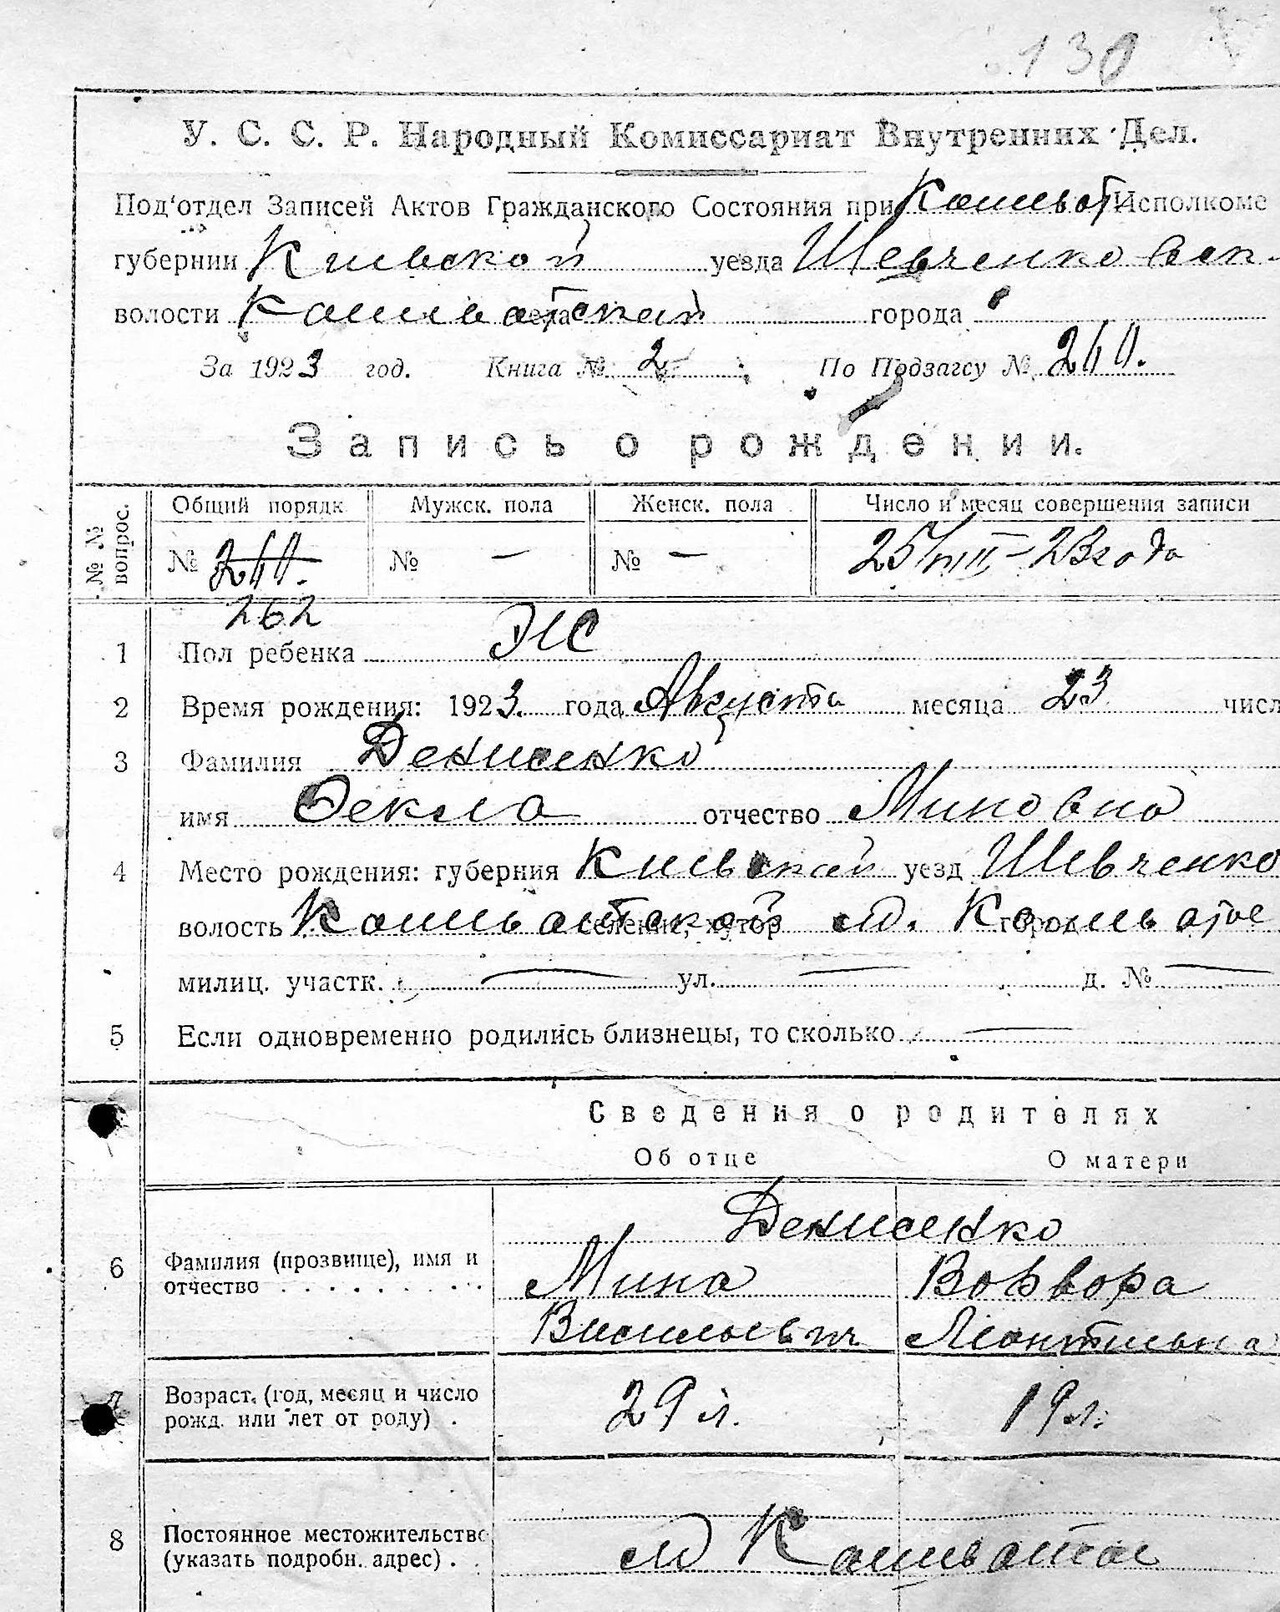 130
У. С. С. Р. Народный Комиссариат Внутренних Дел.
Под'отдел Записей Актов Гражданского Состояния при Кашеват Исполкоме
губернии Киевской уезда Шевченковск-
волости Кашеватской села города
За 1923 год. Книга № 2 По Подзагсу № 260.
Запись о рождении.
№ № вопрос. Общий порядк Мужск. пола Женск. пола Число и месяц совершения записи
№ 260. № — № — 25/VIII-23 года
262
1 Пол ребенка Ж
2 Время рождения: 1923. года Августа месяца 23 числ
3 Фамилия Денисенко
имя Фекла отчество Миновна
4 Место рождения: губерния Киевской уезд Шевченко
волость Кашеватской селение, хутор м. Кашеватое город
милиц. участк. — ул. — д. № —
5 Если одновременно родились близнецы, то сколько —
Сведения о родителях
Об отце О матери
Денисенко
6 Фамилия (прозвище), имя и Мина Ворвора
отчество Васильевич Леонтиевна
7 Возраст. (год, месяц и число 29 л. 19 л.
рожд. или лет от роду) .
8 Постоянное местожительство м Кашеватое
(указать подробн. адрес) . .